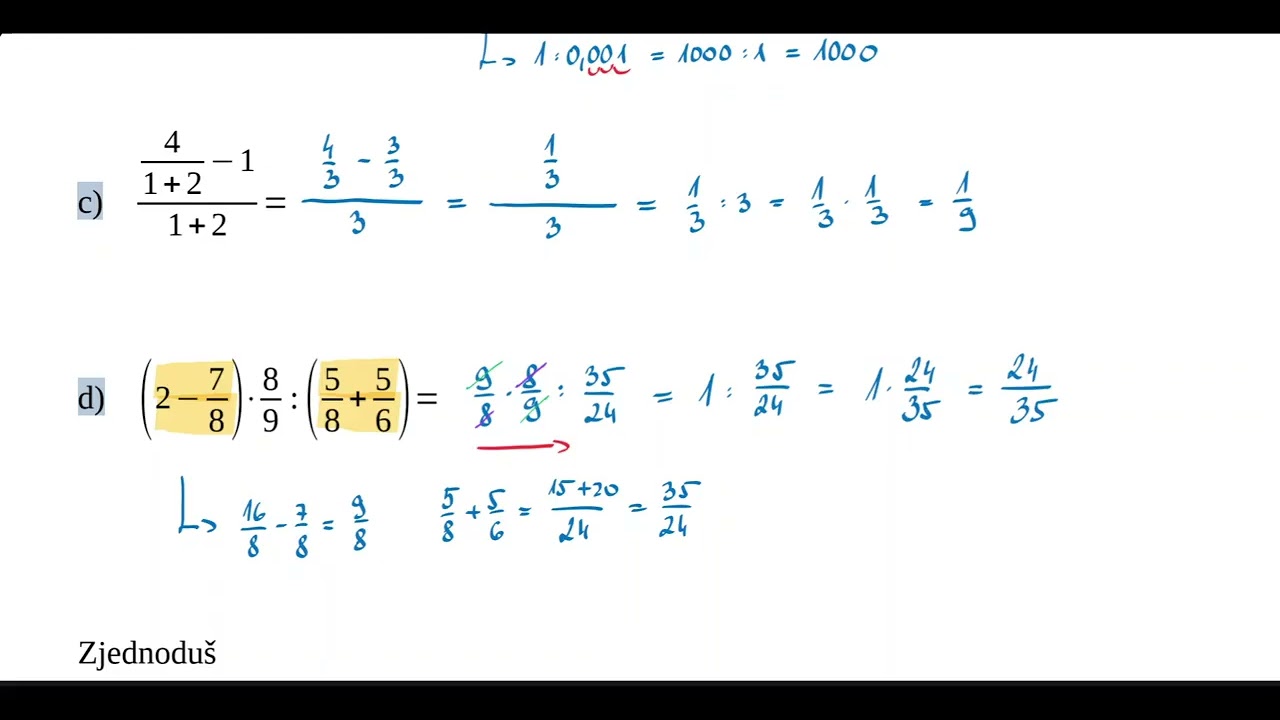 ↳ 1 : 0,001 = 1000 : 1 = 1000
c) (4/(1+2) − 1)/(1+2) = (4/3 - 3/3)/3 = (1/3)/3 = 1/3 : 3 = 1/3 · 1/3 = 1/9
d) (2 − 7/8) · 8/9 : (5/8 + 5/6) = 9/8 · 8/9 : 35/24 = 1 : 35/24 = 1 · 24/35 = 24/35
↳ 16/8 - 7/8 = 9/8 5/8 + 5/6 = (15+20)/24 = 35/24
Zjednoduš